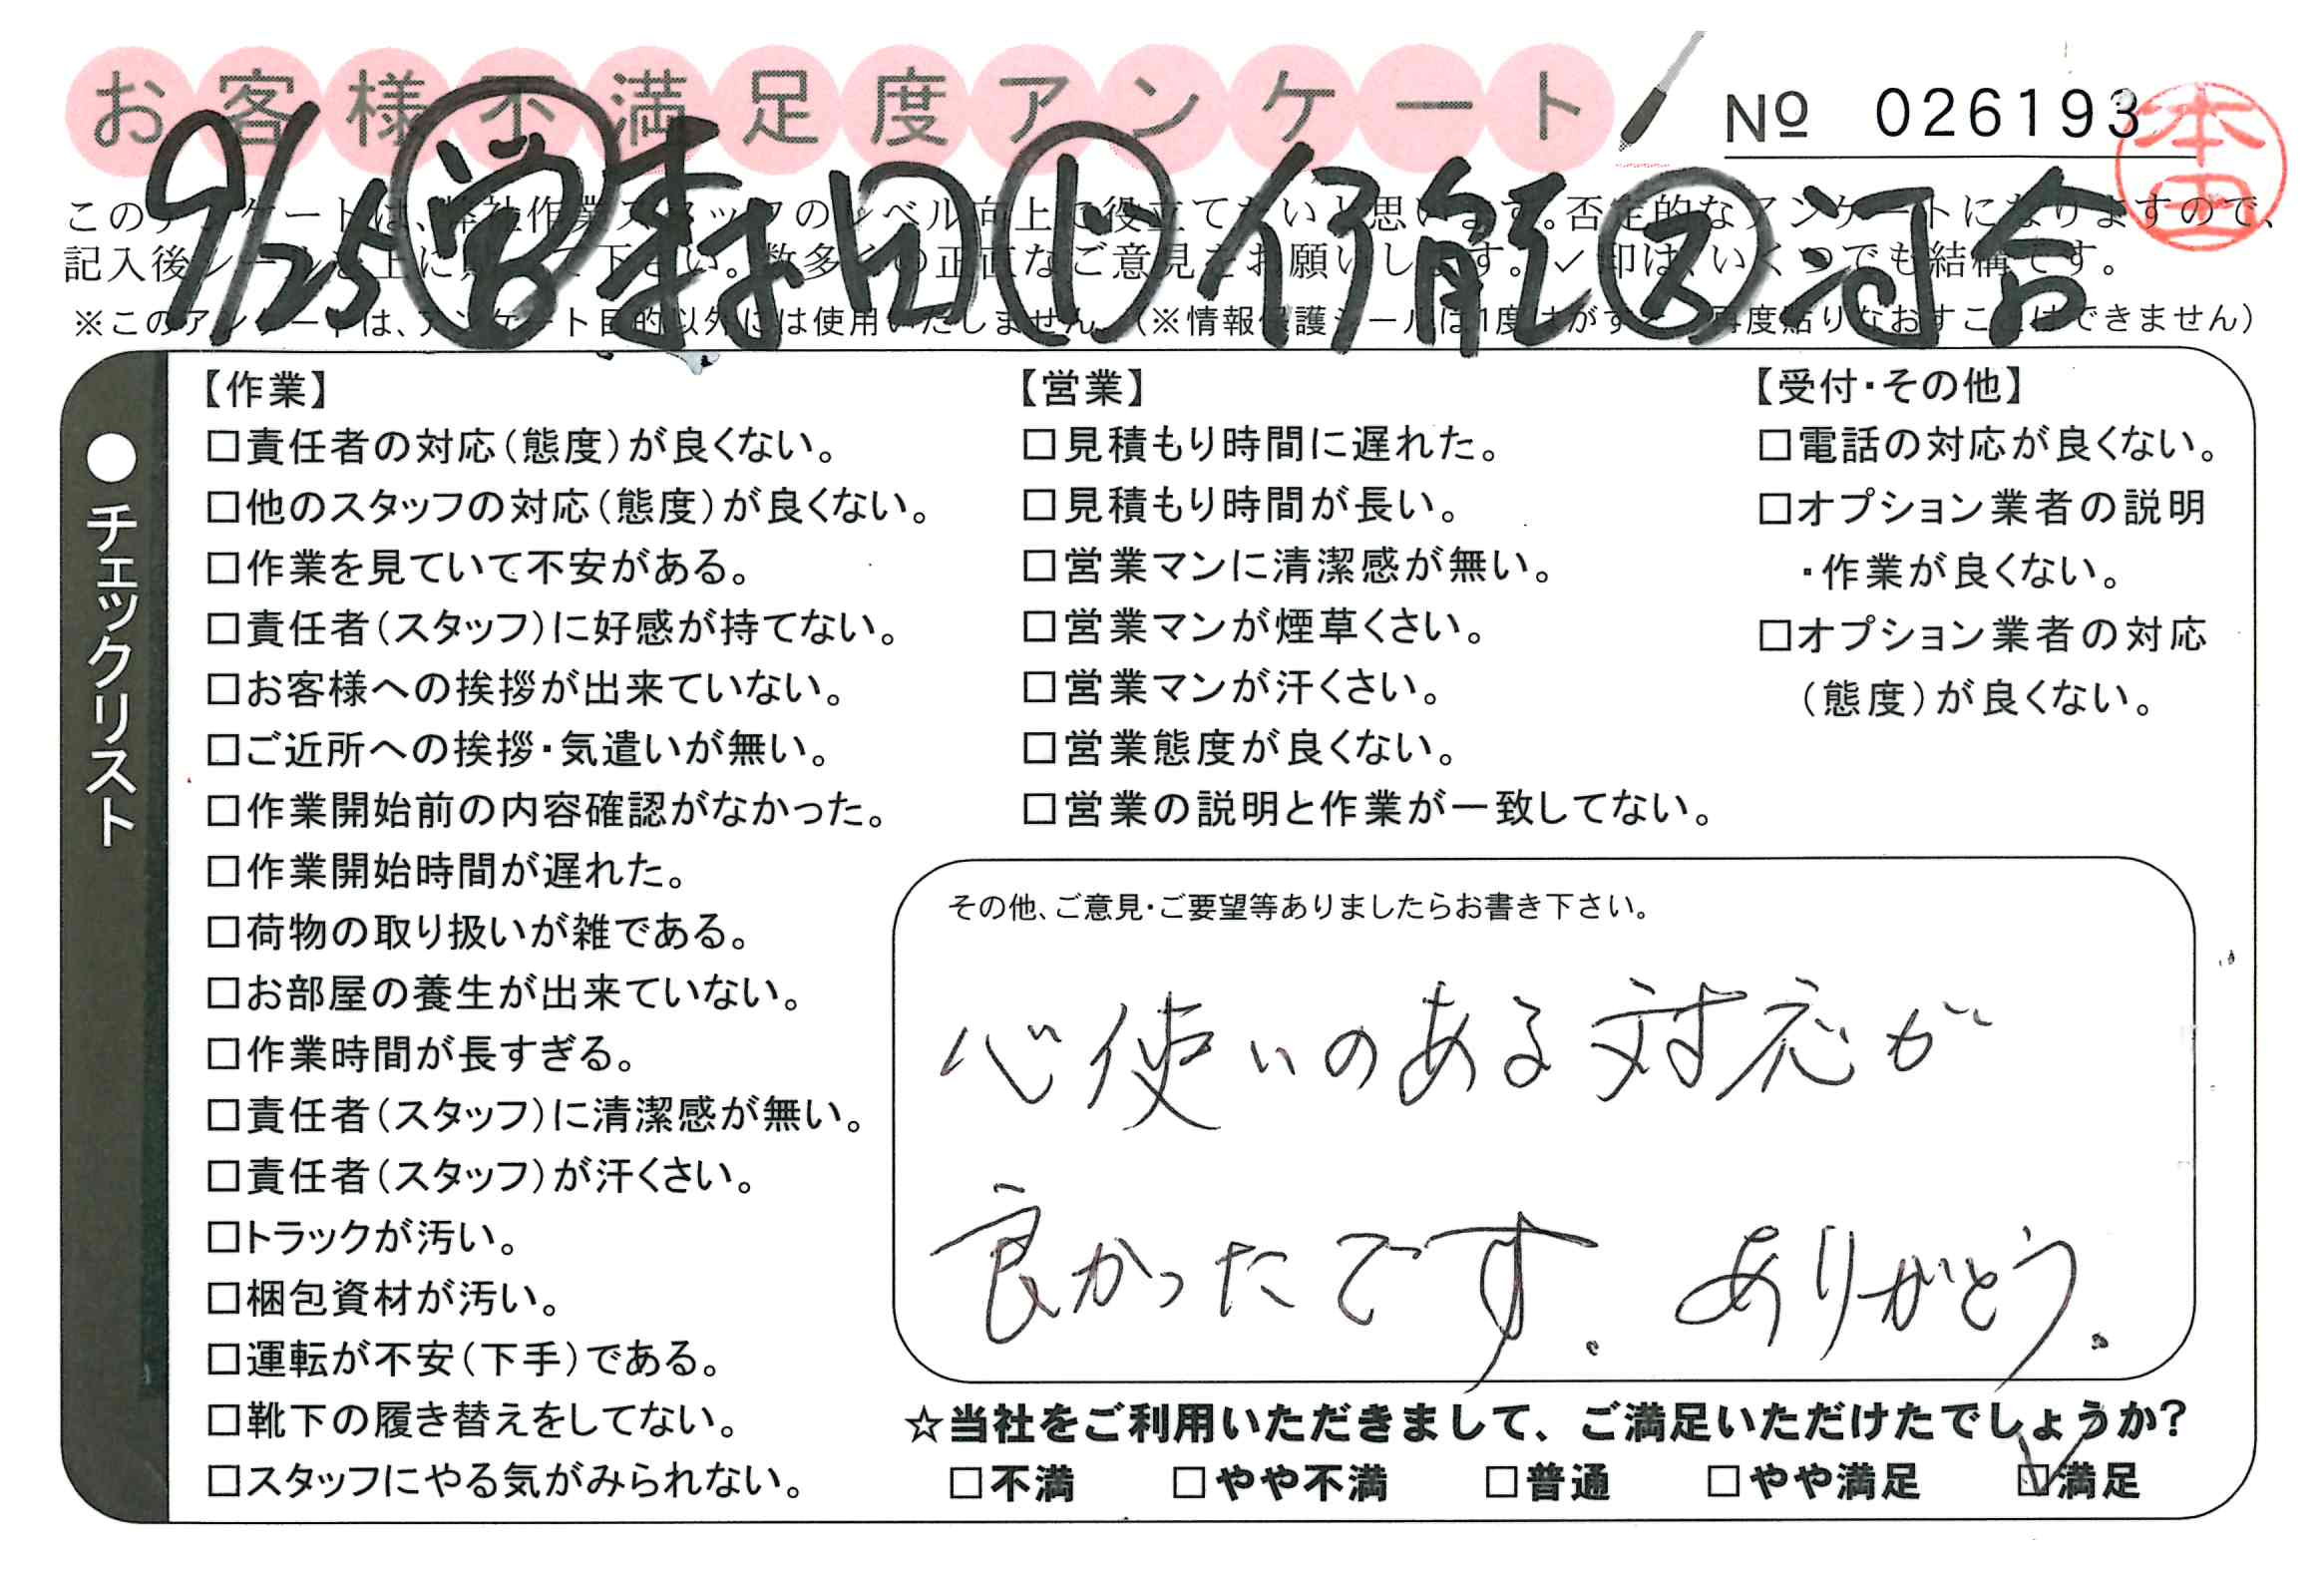 お客様不満足度アンケート
№ 026193
本田
9/25 営 森田 ド 伊能 ス 河合
このアンケートは、弊社作業スタッフのレベル向上に役立てたいと思います。否定的なアンケートになりますので、
記入後シールを上に貼って下さい。数多くの正直なご意見をお願いします。✓印は、いくつでも結構です。
※このアンケートは、アンケート目的以外には使用いたしません。(※情報保護シールは1度はがすと、再度貼りなおすことはできません)
●チェックリスト
【作業】
□責任者の対応(態度)が良くない。
□他のスタッフの対応(態度)が良くない。
□作業を見ていて不安がある。
□責任者(スタッフ)に好感が持てない。
□お客様への挨拶が出来ていない。
□ご近所への挨拶・気遣いが無い。
□作業開始前の内容確認がなかった。
□作業開始時間が遅れた。
□荷物の取り扱いが雑である。
□お部屋の養生が出来ていない。
□作業時間が長すぎる。
□責任者(スタッフ)に清潔感が無い。
□責任者(スタッフ)が汗くさい。
□トラックが汚い。
□梱包資材が汚い。
□運転が不安(下手)である。
□靴下の履き替えをしてない。
□スタッフにやる気がみられない。
【営業】
□見積もり時間に遅れた。
□見積もり時間が長い。
□営業マンに清潔感が無い。
□営業マンが煙草くさい。
□営業マンが汗くさい。
□営業態度が良くない。
□営業の説明と作業が一致してない。
【受付・その他】
□電話の対応が良くない。
□オプション業者の説明
・作業が良くない。
□オプション業者の対応
(態度)が良くない。
その他、ご意見・ご要望等ありましたらお書き下さい。
心使いのある対応が
良かったです。ありがとう。
☆当社をご利用いただきまして、ご満足いただけたでしょうか?
□不満 □やや不満 □普通 □やや満足 ☑満足